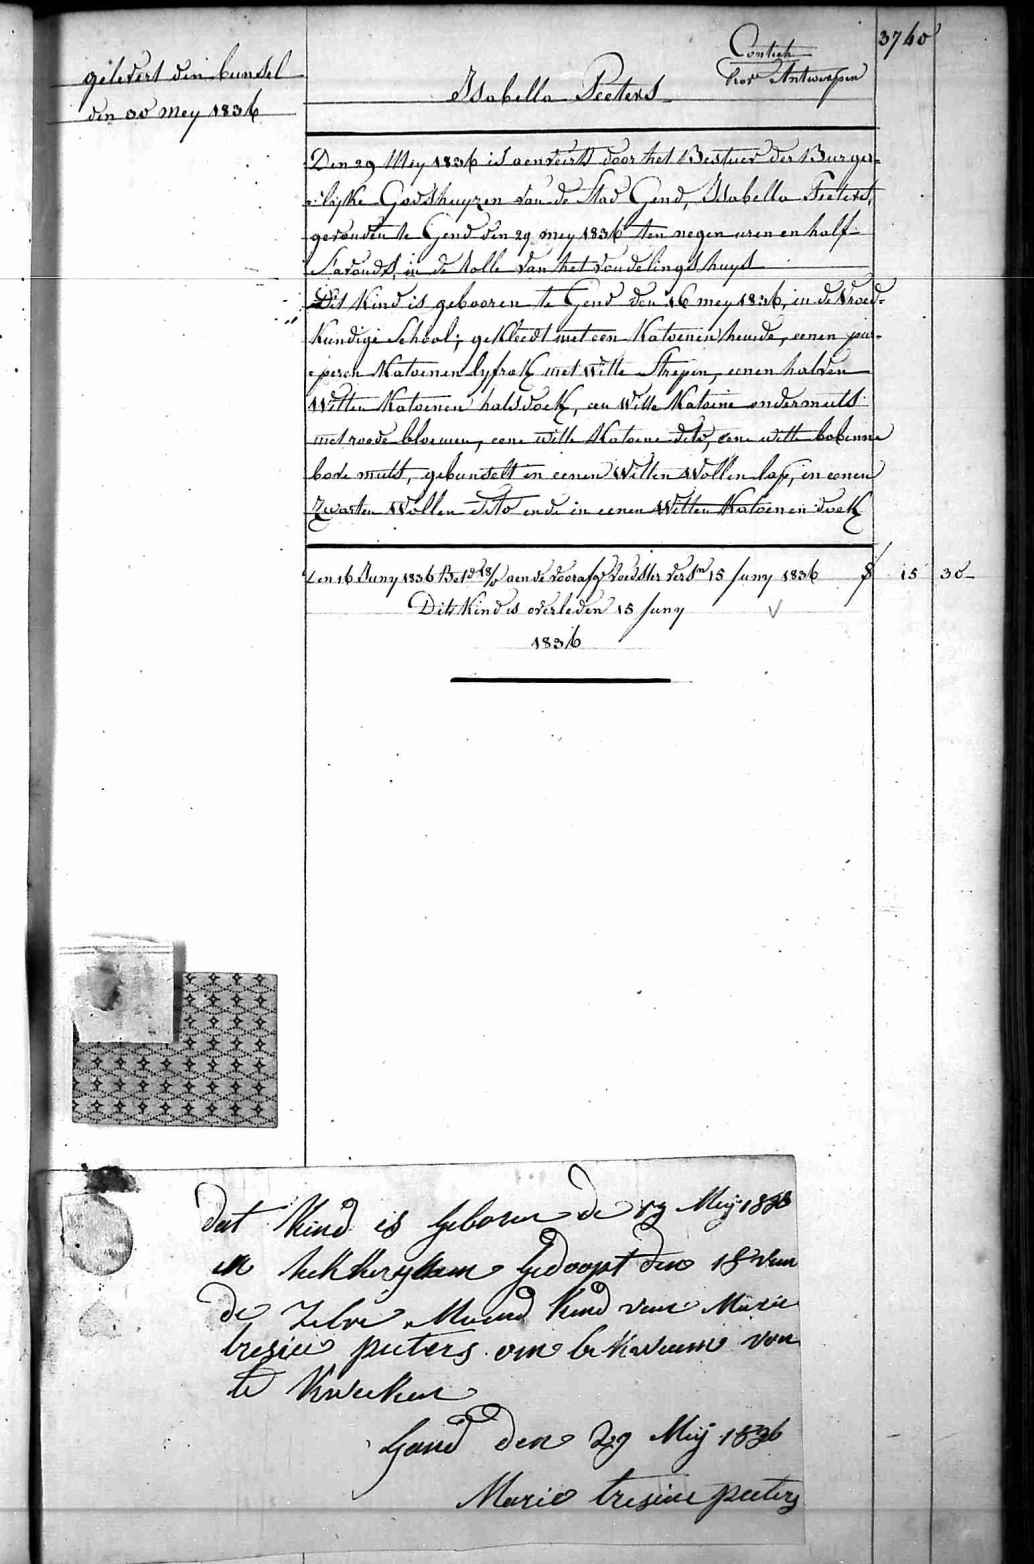 3740
gelevert den bunsel
den 30 Mey 1836
Contich
Isabella Peeters
Den 29 Mey 1836 is aenveird door het Bestuer der Burger-
lijke Godshuyzen van de Stad Gend, Isabella Peeters,
gevonden te Gend den 29 mey 1836 ten negen uren en half
s'avonds, in de rolle van het vondelingshuys
Dit kind is gebooren te Gend den 16 mey 1836, in de Vroed-
kundige School; gekleedt met een Katoenen hemde, eenen pur-
peren Katoenen lyfrok met Witte Strepen, eenen halven
Witten Katoenen halsdoek, een Witte Katoene ondermuts
met roode bloemen, eene witte Katoene dito, eene witte bobenne
bove muts, gebunselt in eenen Witten Wollen lap, in eenen
Zwarten Wollen dito ende in eenen Witten Katoenen doek
Den 16 Juny 1836 aen de voedster 15 Juny 1836 15 30
Dit Kind is overleden 15 Juny
1836
dat Kind is geboren de 17 Mey 1836
in gedoopt den 18 van
de Zelve Maend kind van Marie
tresia peeters om bekwaem van
te kweeken
Gend den 29 Mey 1836
Marie tresia peeters